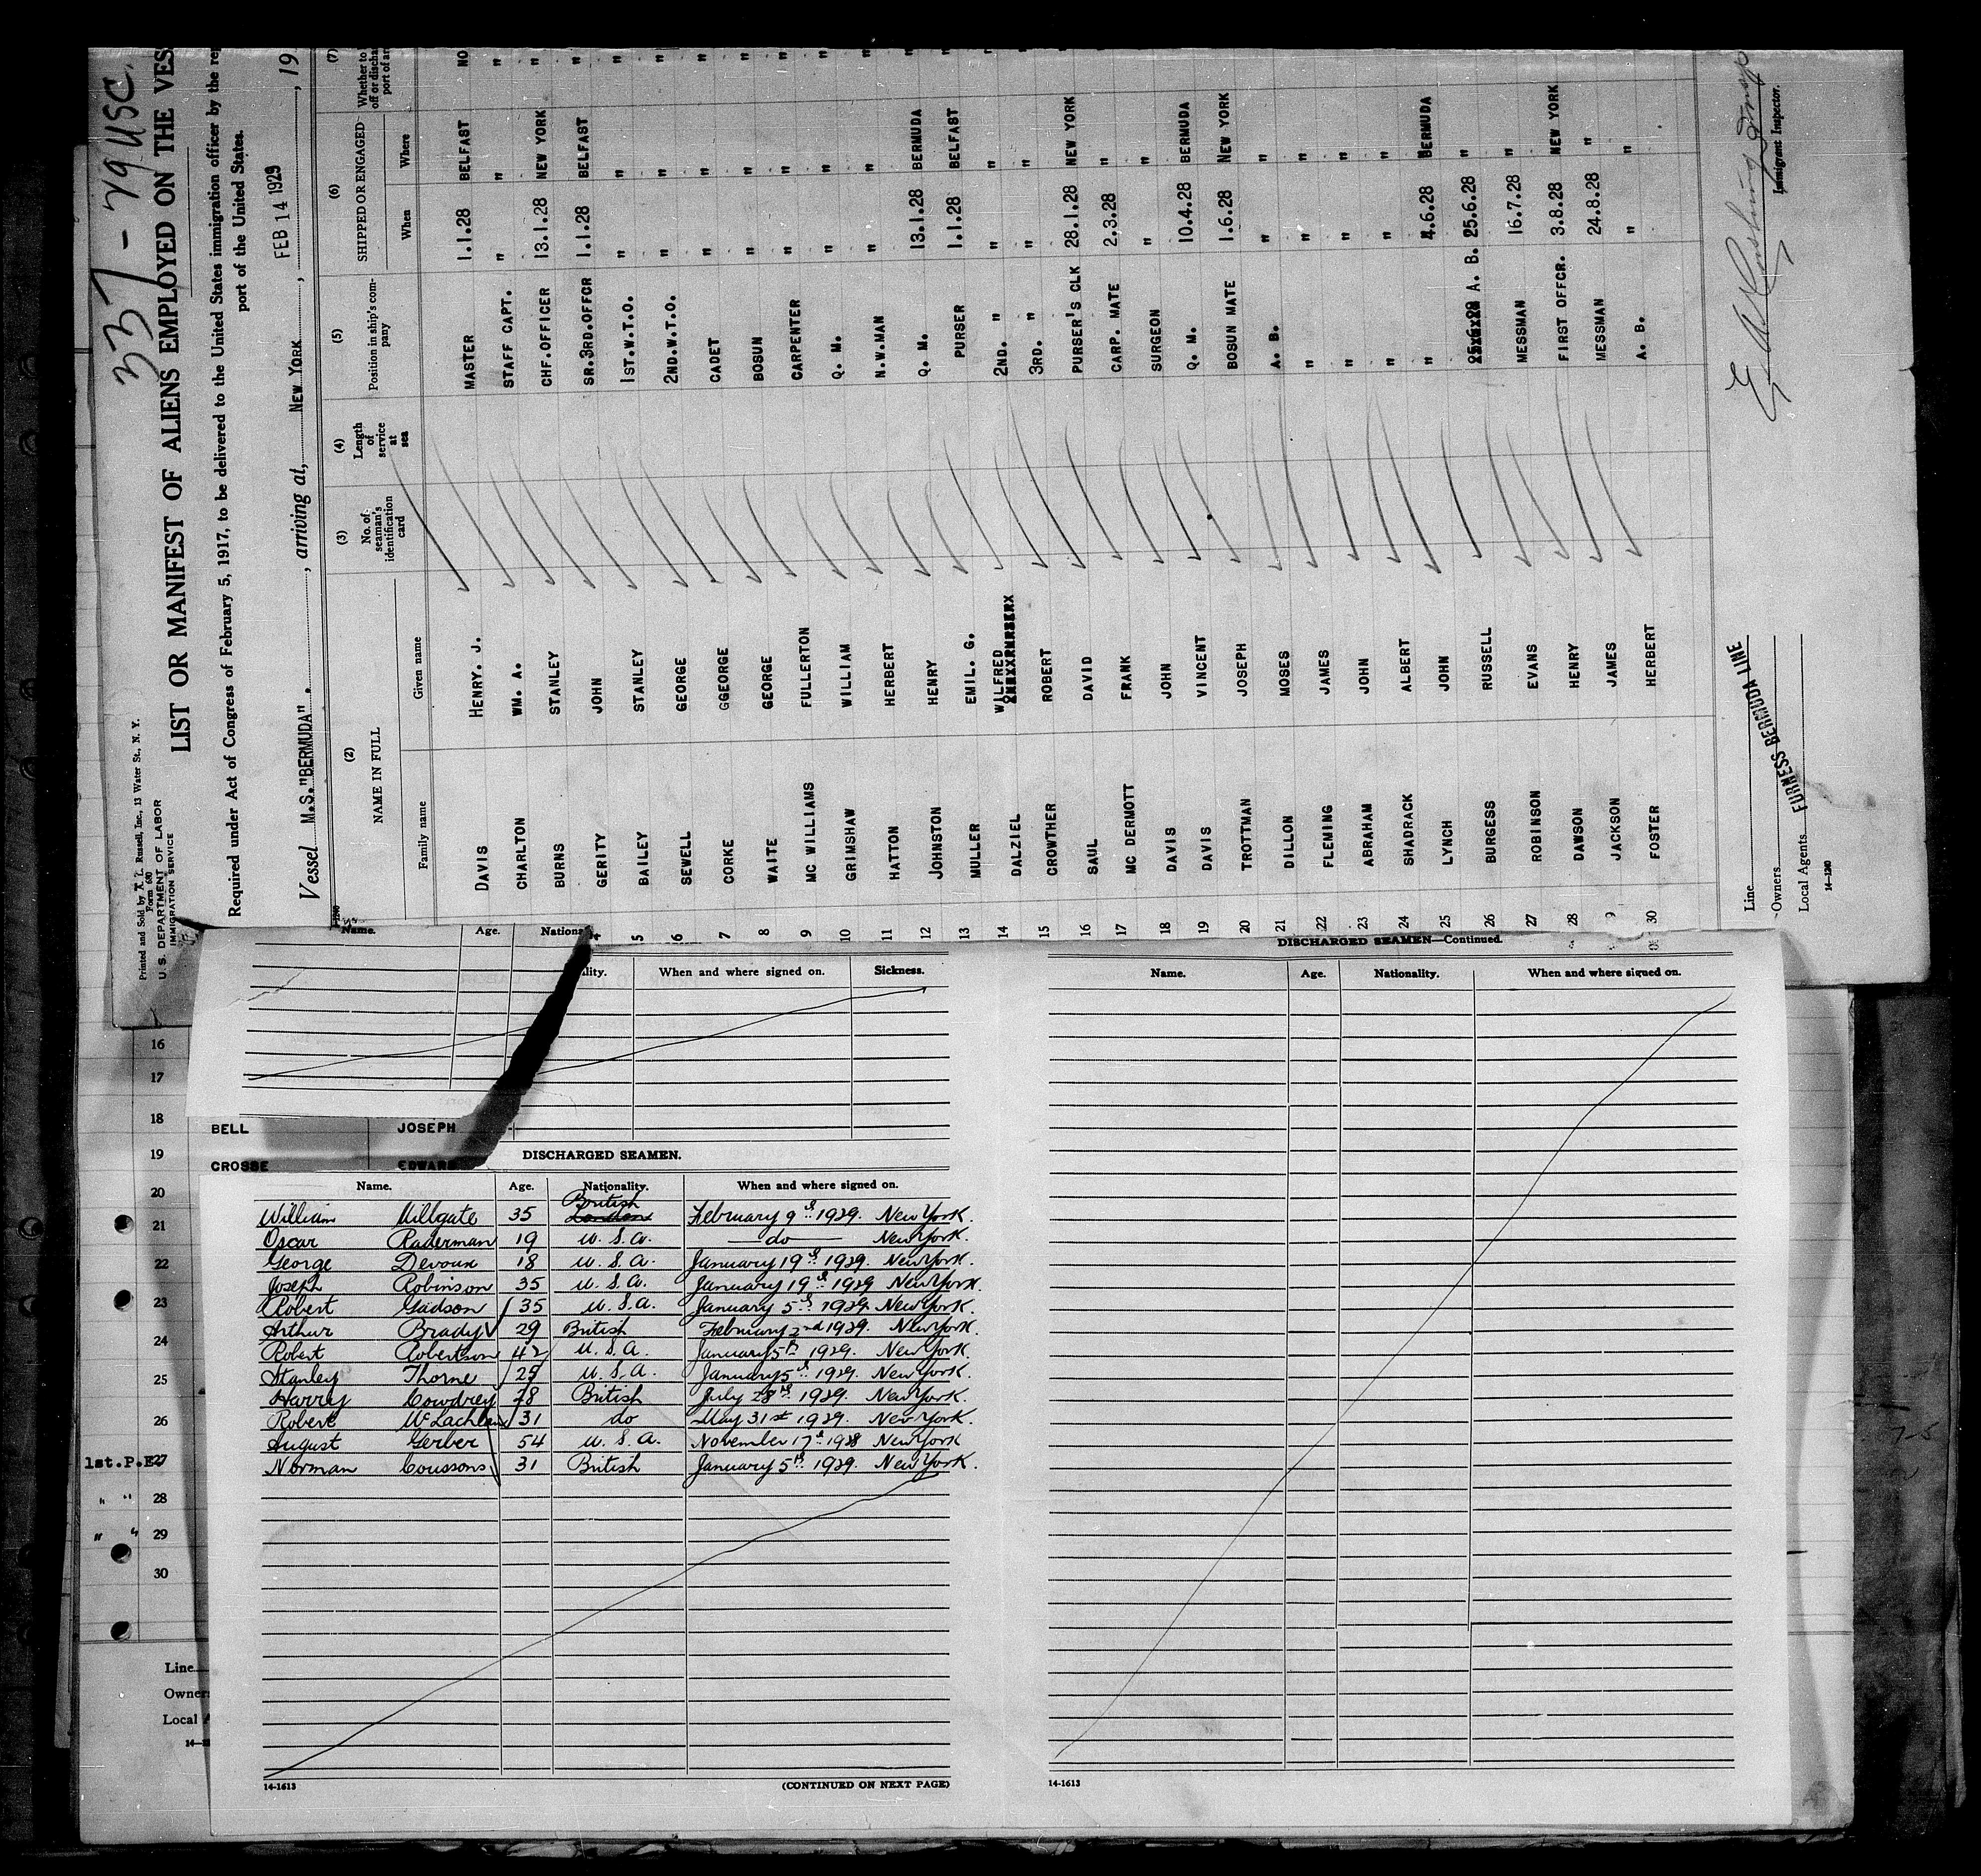 337 - 79 USC.
Printed and Sold by A. L. Russell, Inc., 13 Water St., N. Y.
Form 680
U. S. DEPARTMENT OF LABOR
IMMIGRATION SERVICE
LIST OR MANIFEST OF ALIENS EMPLOYED ON THE VES
Required under Act of Congress of February 5, 1917, to be delivered to the United States immigration officer by the rep
port of the United States.
Vessel M.S."BERMUDA". , arriving at, NEW YORK , FEB 14 1929 , 19
(2) (3) (4) (5) (6) (7)
NAME IN FULL No. of seaman's identification card Length of service at sea Position in ship's company SHIPPED OR ENGAGED Whether to
off or discha
port of ar
Family name Given name When Where
DAVIS HENRY. J. MASTER 1.1.28 BELFAST NO
CHARLTON WM. A. STAFF CAPT. " " "
BURNS STANLEY CHF.OFFICER 13.1.28 NEW YORK "
4 GERITY JOHN SR.3RD.OFFCR 1.1.28 BELFAST "
5 BAILEY STANLEY 1ST.W.T.O. " " "
6 SEWELL GEORGE 2ND.W.T.O. " " "
7 CORKE GGEORGE CADET " " "
8 WAITE GEORGE BOSUN " " "
9 MC WILLIAMS FULLERTON CARPENTER " " "
10 GRIMSHAW WILLIAM Q. M. " " "
11 HATTON HERBERT N.W.MAN " " "
12 JOHNSTON HENRY Q. M. 13.1.28 BERMUDA "
13 MULLER EMIL. G. PURSER 1.1.28 BELFAST "
14 DALZIEL WILFRED 2ND. " " " "
15 CROWTHER ROBERT 3RD. " " " "
16 SAUL DAVID PURSER'S CLK 28.1.28 NEW YORK "
17 MC DERMOTT FRANK CARP. MATE 2.3.28 " "
18 DAVIS JOHN SURGEON " " "
19 DAVIS VINCENT Q. M. 10.4.28 BERMUDA "
20 TROTTMAN JOSEPH BOSUN MATE 1.6.28 NEW YORK "
21 DILLON MOSES A. B. " " "
22 FLEMING JAMES " " " "
23 ABRAHAM JOHN " " " "
24 SHADRACK ALBERT " " " "
25 LYNCH JOHN " 4.6.28 BERMUDA "
26 BURGESS RUSSELL A. B. 25.6.28 " "
27 ROBINSON EVANS MESSMAN 16.7.28 " "
28 DAWSON HENRY FIRST OFFCR. 3.8.28 NEW YORK
9 JACKSON JAMES MESSMAN 24.8.28 "
30 FOSTER HERBERT A. B. " "
Line
Owners
Local Agents
FURNESS BERMUDA LINE
14-1240
Immigrant Inspector.
Name. Age. Nationa
lity. When and where signed on. Sickness.
16
17
18 BELL JOSEPH
19 CROSBE EDWARD
20
21
22
23
24
25
26
1st.P.E 27
" " 28
" " 29
30
Line
Owner
Local A
DISCHARGED SEAMEN.
Name. Age. Nationality. When and where signed on.
William Millgate 35 British London February 9th 1929. New York.
Oscar Raderman 19 U. S. A. do New York.
George Devoux 18 U. S. A. January 19th 1929. New York.
Joseph Robinson 35 U. S. A. January 19th 1929 New York.
Robert Gadson 35 U. S. A. January 5th 1929. New York.
Arthur Brady 29 British February 2nd 1929. New York.
Robert Robertson 42 U. S. A. January 5th 1929. New York.
Stanley Thorne 25 U. S. A. January 5th 1929. New York.
Harry Cowdrey 28 British July 28th 1929. New York.
Robert McLachlan 31 do May 31st 1929. New York.
August Gerber 54 U. S. A. November 17th 1928 New York
Norman Coussons 31 British January 5th 1929. New York.
14-1613 (CONTINUED ON NEXT PAGE)
DISCHARGED SEAMEN—Continued.
Name. Age. Nationality. When and where signed on.
14-1613